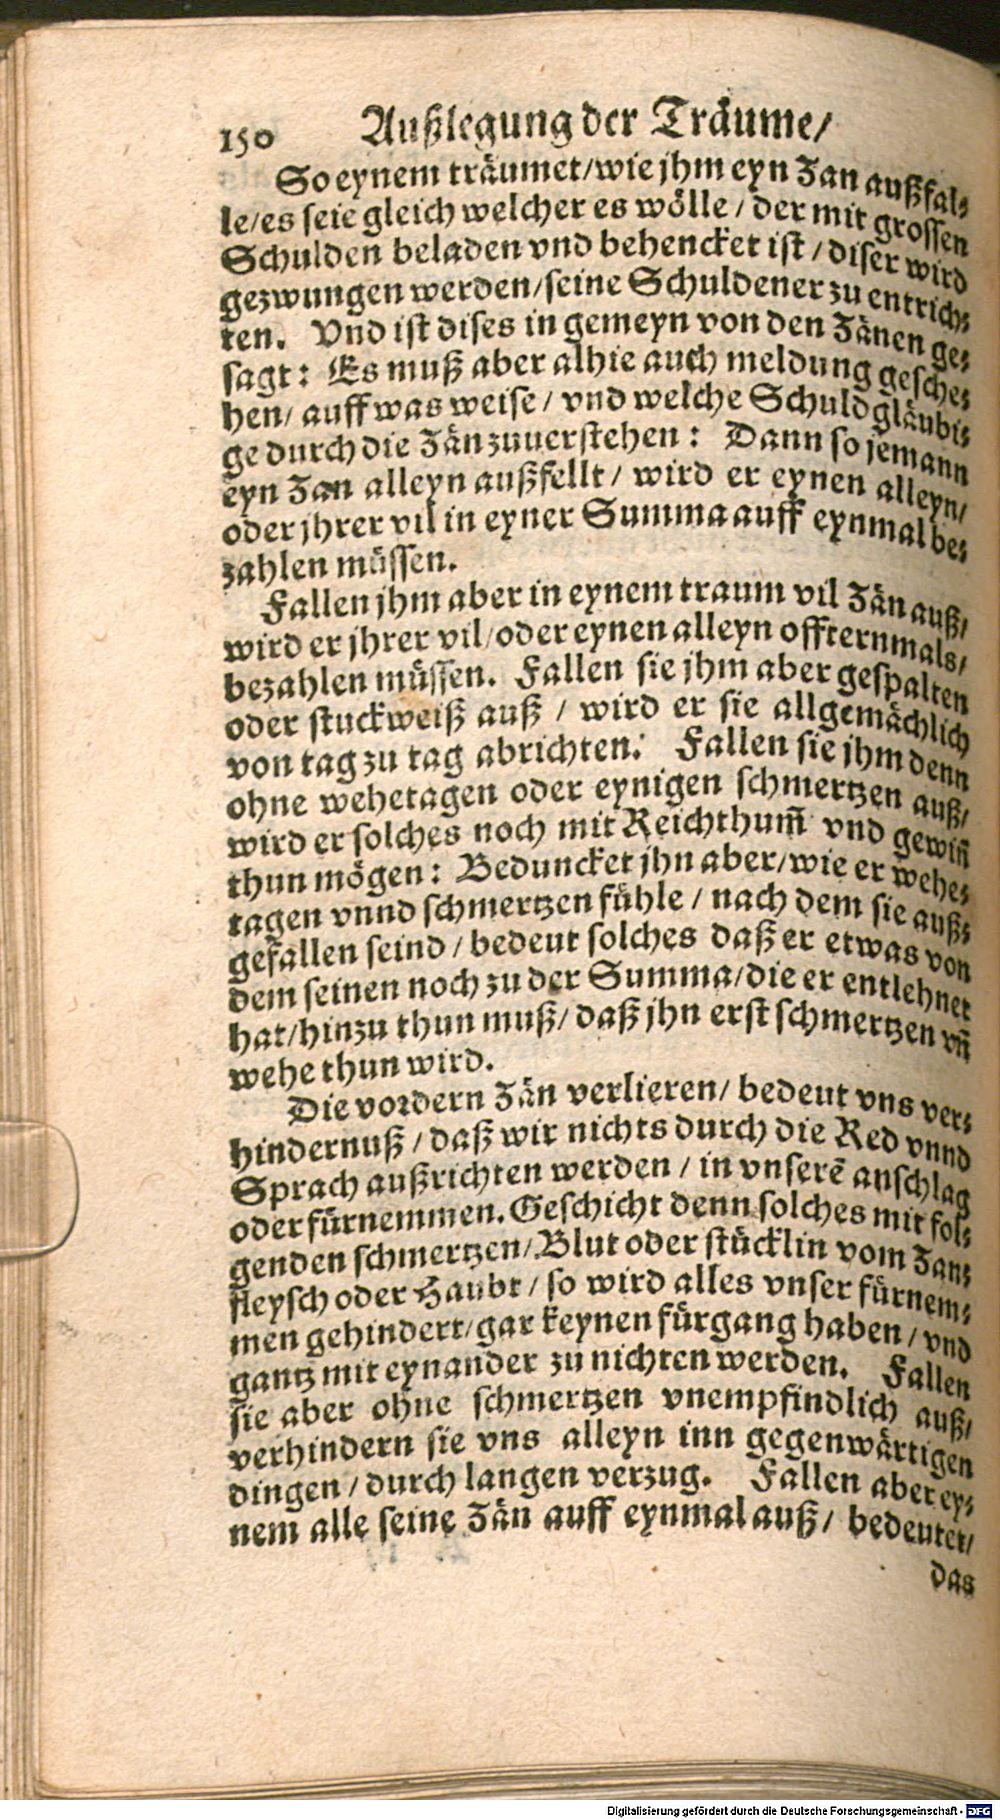 150 Außlegung der Träume/
So eynem träumet/wie jhm eyn Zan außfal⸗
le/es seie gleich welcher es wölle / der mit grossen
Schulden beladen vnd behencket ist / diser wird
gezwungen werden/seine Schuldener zu entrich⸗
ten. Vnd ist dises in gemeyn von den Zänen ge⸗
sagt: Es muß aber alhie auch meldung gesche⸗
hen/ auff was weise / vnd welche Schuldgläubi⸗
ge durch die Zän zuuerstehen: Dann so jemann
eyn Zan alleyn außfellt / wird er eynen alleyn/
oder jhrer vil in eyner Summa auff eynmal be⸗
zahlen müssen.
Fallen jhm aber in eynem traum vil Zän auß/
wird er jhrer vil/oder eynen alleyn offternmals/
bezahlen müssen. Fallen sie jhm aber gespalten
oder stuckweiß auß / wird er sie allgemächlich
von tag zu tag abrichten. Fallen sie jhm denn
ohne wehetagen oder eynigen schmertzen auß/
wird er solches noch mit Reichthum̃ vnd gewiñ
thun mögen: Beduncket jhn aber/wie er wehe⸗
tagen vnnd schmertzen fühle / nach dem sie auß⸗
gefallen seind / bedeut solches daß er etwas von
dem seinen noch zu der Summa/die er entlehnet
hat/hinzu thun muß/daß jhn erst schmertzen vñ
wehe thun wird.
Die vordern Zän verlieren/ bedeut vns ver⸗
hindernuß / daß wir nichts durch die Red vnnd
Sprach außrichten werden / in vnserẽ anschlag
oder fürnemmen. Geschicht denn solches mit fol⸗
genden schmertzen/Blut oder stücklin vom Zan⸗
fleysch oder Haubt / so wird alles vnser fürnem⸗
men gehindert/gar keynen fürgang haben / vnd
gantz mit eynander zu nichten werden. Fallen
sie aber ohne schmertzen vnempfindlich auß/
verhindern sie vns alleyn inn gegenwärtigen
dingen / durch langen verzug. Fallen aber ey⸗
nem alle seine Zän auff eynmal auß/ bedeutet/
das
Digitalisierung gefördert durch die Deutsche Forschungsgemeinschaft - DFG